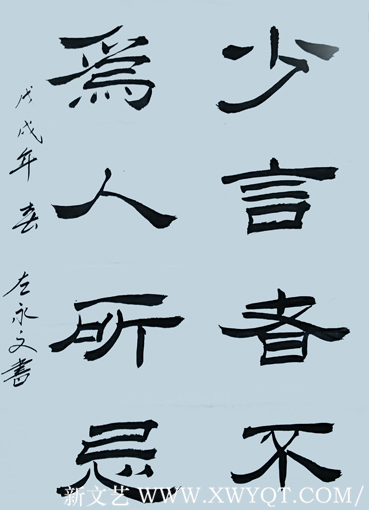 少言者不
為人所忌
戊戌年春 左永文書
新文艺 WWW.XWYQT.COM/